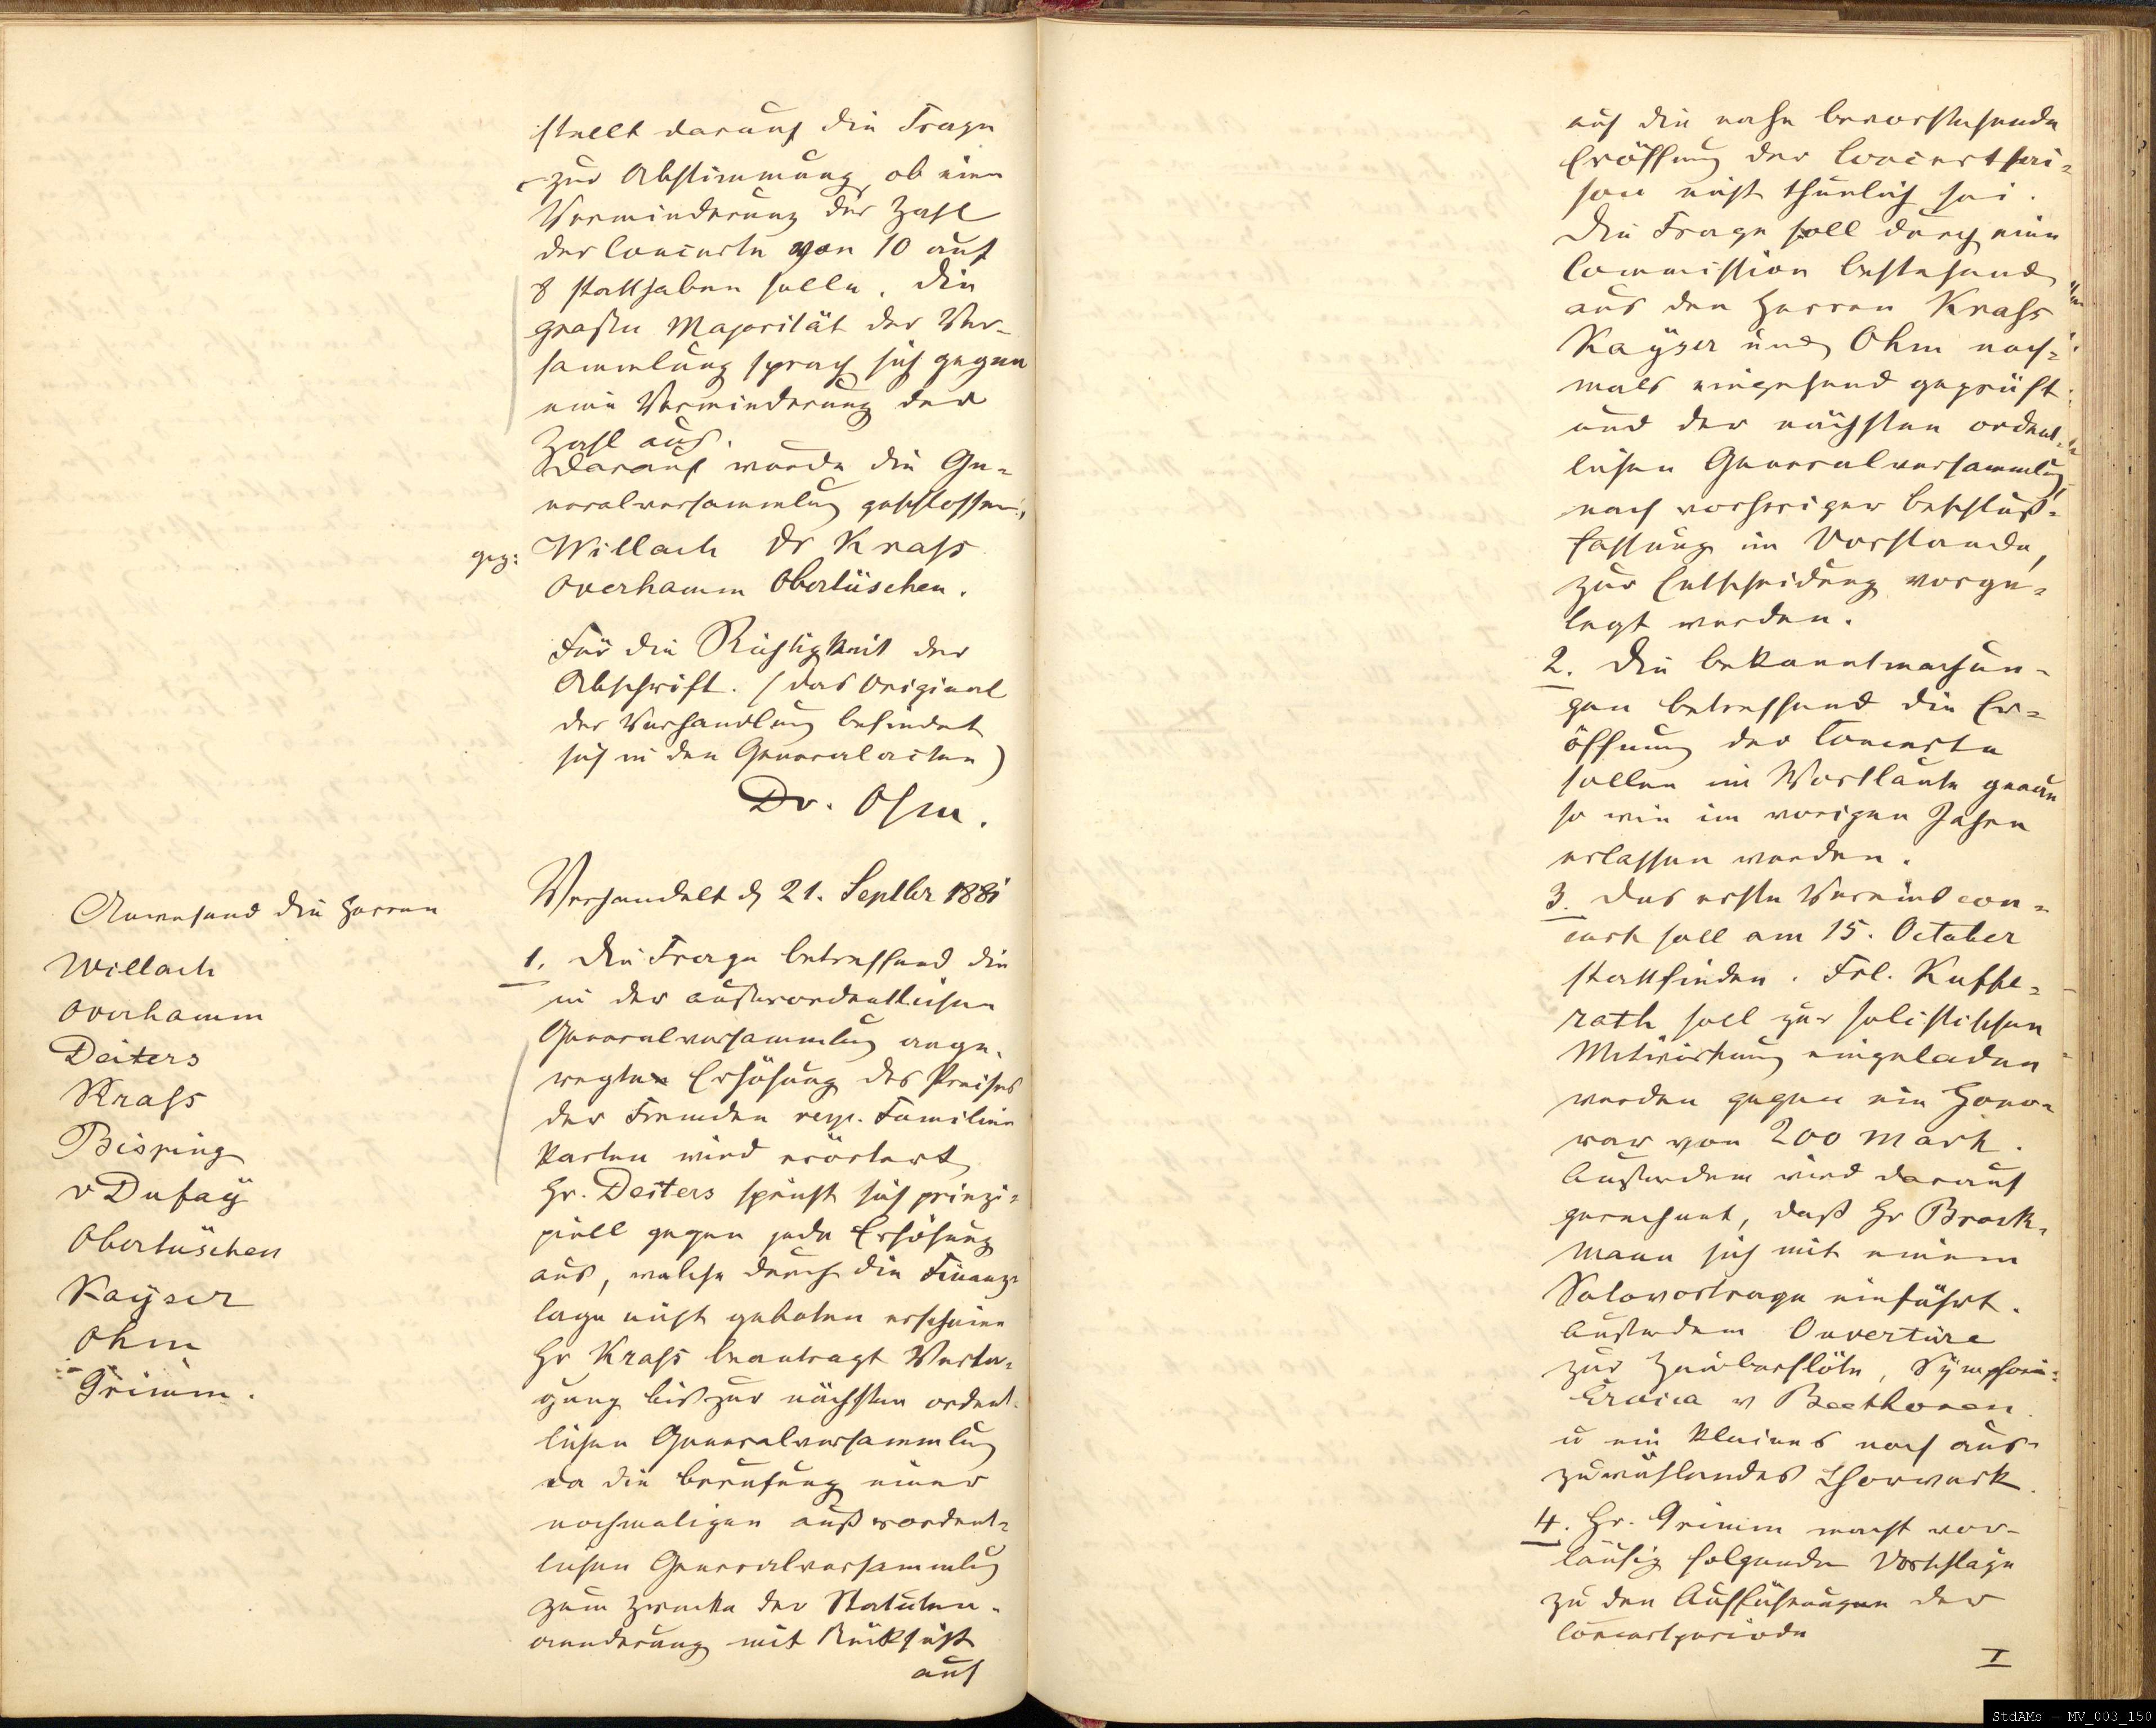 stellt darauf die Frage
zur Abstimmung, ob eine
Verminderung der Zahl
der Concerte von 10 auf
8 statthaben solle. Die
große Majorität der Ver-
sammlung sprach sich gegen
eine Verminderung der
Zahl aus.
Darauf wurde die Ge-
neralversammlung geschlossen.
gez: Willach Dr Krass
Overhamm Obertüschen.
Für die Richtigkeit der
Abschrift. (das Original
der Verhandlung befindet
sich in den Generalacten)
Dr. Ohm.
Verhandelt d 21. Septbr 1881
Anwesend die Herren
Willach
Overhamm
Deiters
Krass
Bisping
v Dufay
Obertüschen
Kayser
Ohm
Grimm.
1. Die Frage betreffend die
in der außerordentlichen
Generalversammlung ange-
regte Erhöhung des Preises
der Fremden resp. Familien
karten wird erörtert
Hr. Deiters spricht sich prinzi-
piell gegen jede Erhöhung
aus, welche durch die Finanz-
lage nicht geboten erscheine
Hr Krass beantragt Verta-
gung bis zur nächsten ordent-
lichen Generalversammlung
da die Berufung einer
nochmaligen außerordent-
lichen Generalversammlung
zum Zwecke der Statuten-
aenderung mit Rücksicht
auf
auf die nahe bevorstehende
Eröffnung der Concertsai-
son nicht thunlich sei.
Die Frage soll durch eine
Commission bestehend
aus den Herren Krass
Kayser und Ohm noch-
mals eingehend geprüft
und der nächsten ordent-
lichen Generalversammlung,
nach vorheriger Beschluß-
fassung im Vorstande,
zur Entscheidung vorge-
legt werden.
2. Die Bekanntmachun-
gen betreffend die Er-
öffnung der Concerte
sollen im Wortlaute genau
so wie im vorigen Jahre
erlassen werden.
3. Das erste Vereinscon-
cert soll am 15. October
stattfinden. Frl. Kuffe-
rath soll zur solistischen
Mitwirkung eingeladen
werden gegen ein Hono-
rar von 200 Mark.
Außerdem wird darauf
gerechnet, daß Hr Brock-
mann sich mit einem
Solovortrage einführt.
Außerdem Ouvertüre
zur Zauberflöte, Symphonie
Eroica v Beethoven
u ein kleines noch aus-
zuwählendes Chorwerk.
4. Hr. Grimm macht vor-
läufig folgende Vorschläge
zu den Aufführungen der
Concertperiode
I
StdAMs - MV_003_150